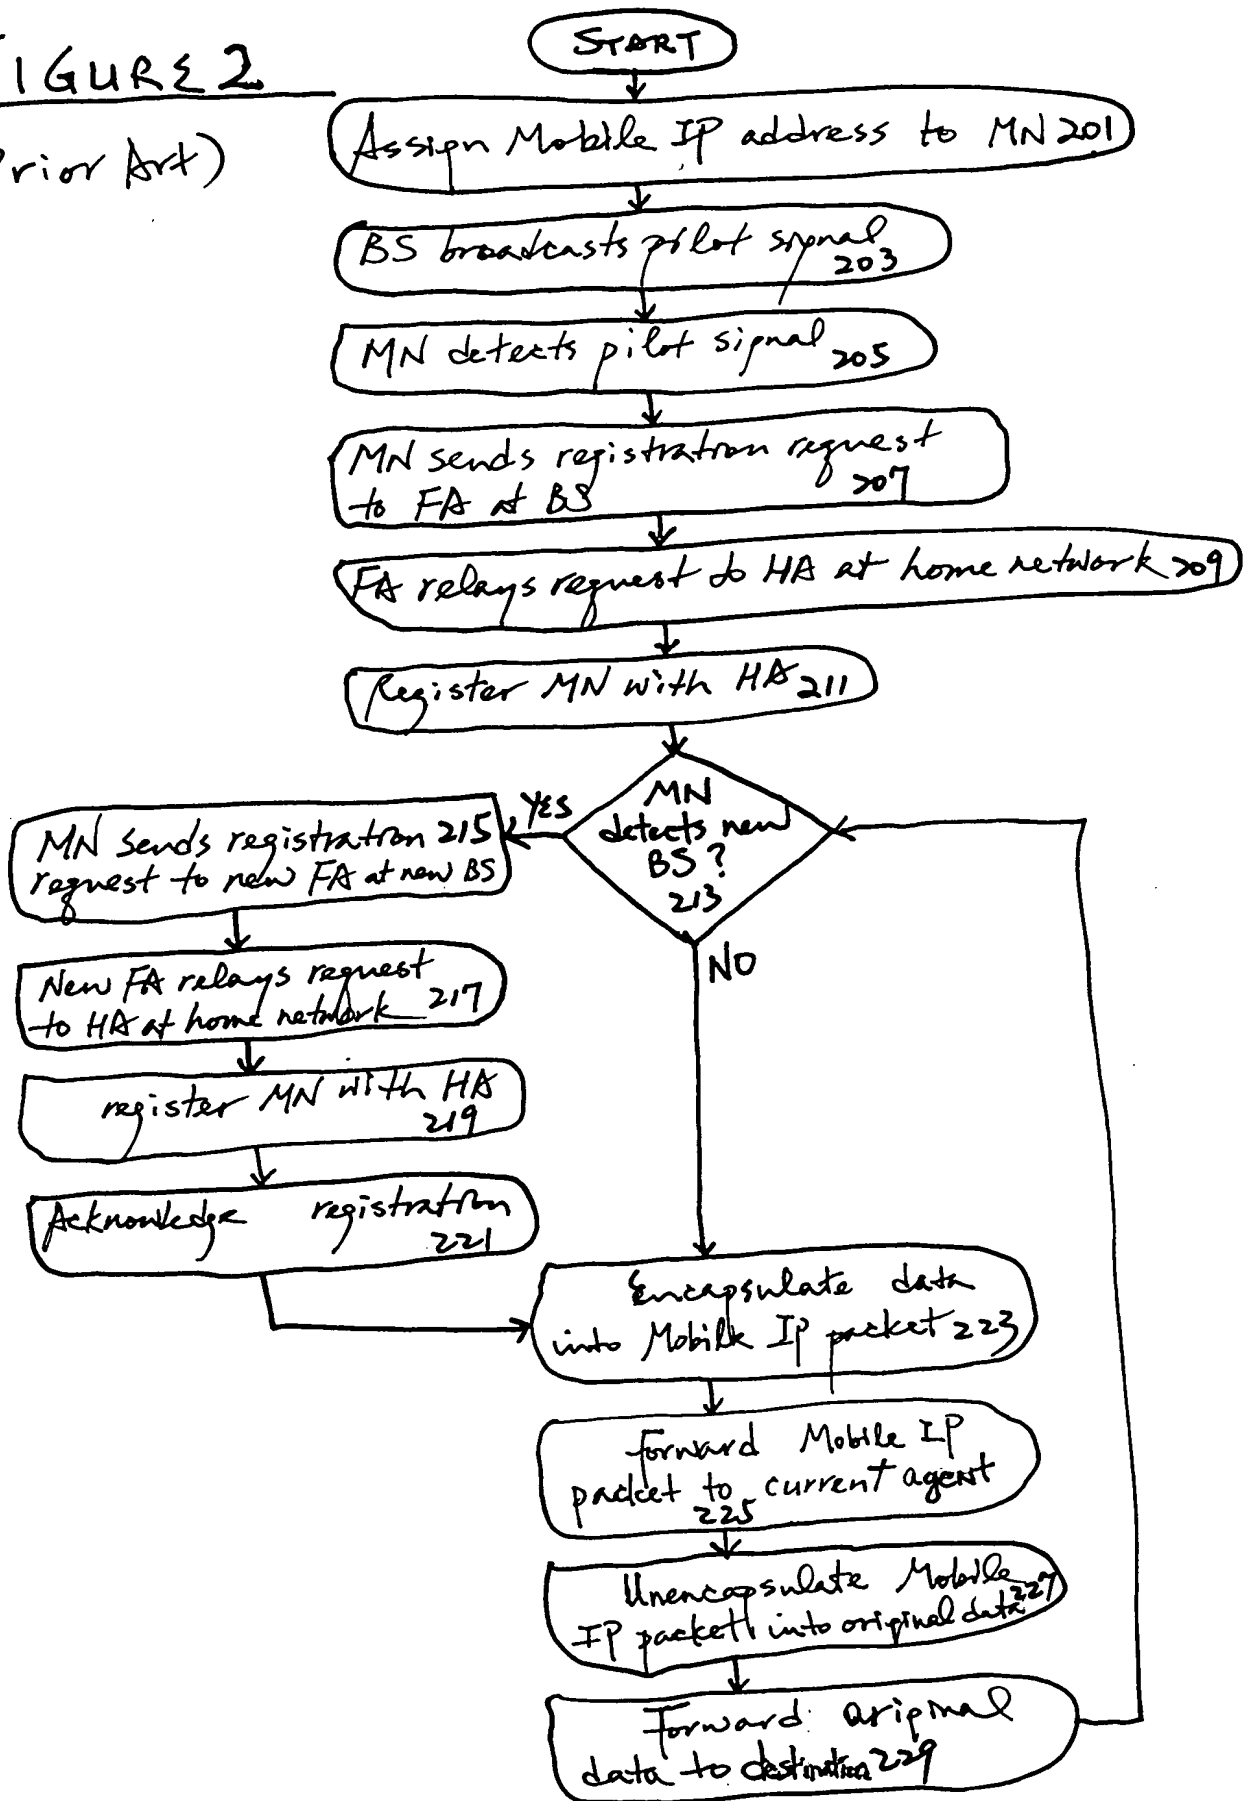 FIGURE 2
(Prior Art)
START
Assign Mobile IP address to MN 201
BS broadcasts pilot signal
203
MN detects pilot signal 205
MN sends registration request
to FA at BS 207
FA relays request to HA at home network 209
Register MN with HA 211
MN
detects new
BS?
213
YES
NO
MN sends registration 215
request to new FA at new BS
New FA relays request
to HA at home network 217
register MN with HA
219
Acknowledge registration
221
Encapsulate data
into Mobile IP packet 223
forward Mobile IP
packet to current agent
225
Unencapsulate Mobile 227
IP packet into original data
Forward original
data to destination 229